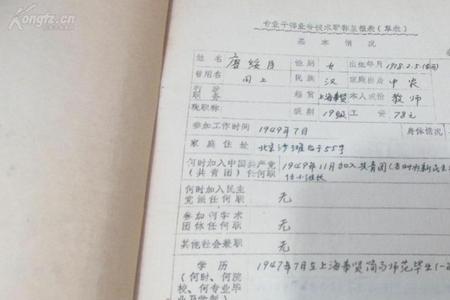 Kongfz.com
专业干部业务技术职称呈报表（草表）
基本情况
姓名 唐绥月 性别 女 出生年月 1928.2.5(阴)
曾用名 同上 民族 汉 家庭出身 中农
行政职务 籍贯 上海奉贤 本人成份 教师
现职称 级别 19级 工资 78元
参加工作时间 1949年7月 身体情况
家庭住址 北京沙滩后于55号
何时加入中国共产党 1949年11月加入共青团
（共青团）任何职
何时加入民主 无
党派任何职
参加何学术 无
团体任何职
其他社会兼职 无
学历 1947年7月在上海奉贤简易师范毕业
（何时、何院
校、何专业毕
业及学制）